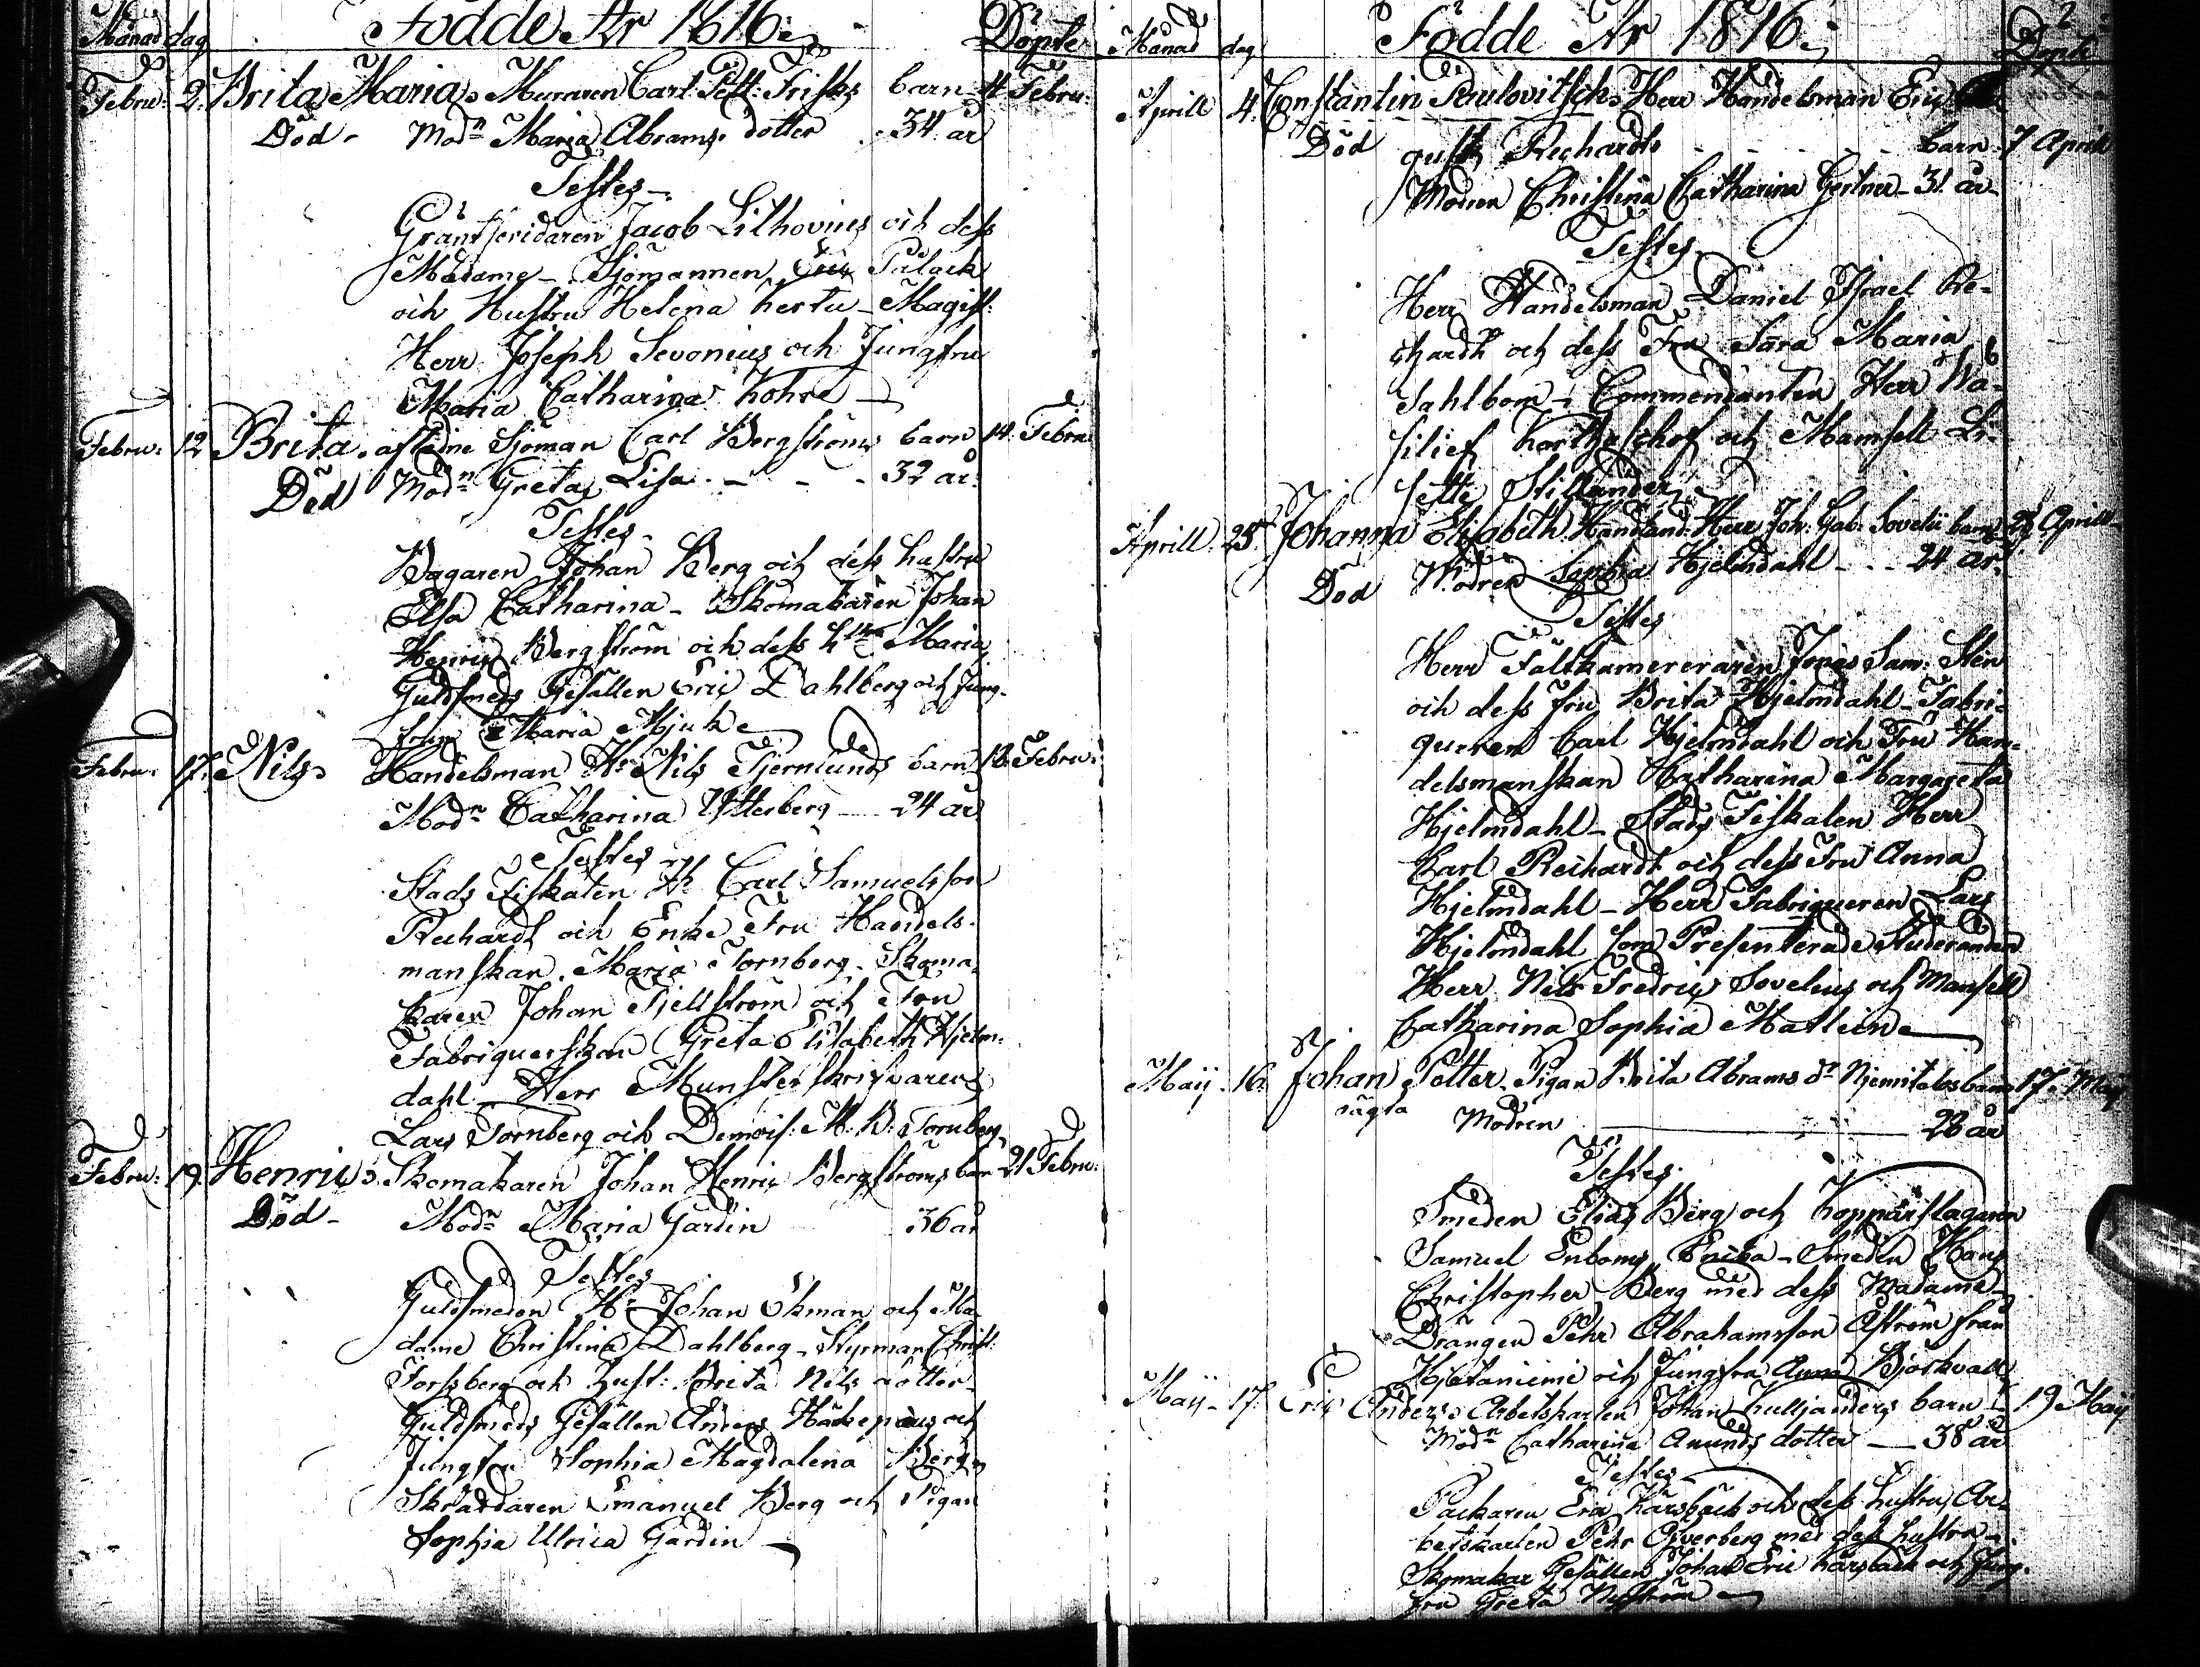 Månad dag Födde År 1816. Döpte
Febru: 2. Brita Maria. Muraren Carl Pett: Frisks barn 4 Febru:
Död - Modn Maria Abrams dotter 34 år
Testes
Gränsseridaren Jacob Lithovius och dess
Madame - Sjömannen Eric Palack
och Hustru Helena hertu - Magist:
Herr Joseph Sevonius och Jungfru
Maria Catharina Kohre
Febru: 12 Brita. afledne Sjöman Carl Bergströms barn 14. Febru:
Död Modn Greta Lisa - - - 32 år.
Testes
Bagaren Johan Berg och dess hustru
Elsa Catharina - Skomakaren Johan
Henric Bergström och dess hustru Maria
Guldsmeds Gesällen Eric Dahlberg och Jung-
frun Maria Mjuke
Febru: 17. Nils. Handelsman Hr Nils Björnlunds barn 18. Febru:
Modn Catharina Ytterberg - 24 år
Testes
Stads Fiskalen Hr Carl Samuelsson
Reichardt och Enke Fru Handels-
manskan Maria Tornberg. Skoma-
karen Johan Kjellström och Fru
Fabriquerskan Greta Elisabeth Hjelm-
dahl - Herr Munsterskrifvaren
Lars Tornberg och Demois: M: B: Tornberg
Febru: 19. Henric. Skomakaren Johan Henric Bergströms barn 21 Febru:
Död - Modn Maria Gardin 36 år
Testes
Guldsmeden Hr Johan Öhman och Ma-
dame Christina Dahlberg - Styrman Christ:
Forssberg och Hust: Brita Nils dotter
Guldsmeds Gesällen Anders och
Jungfru Sophia Magdalena Berg
Skräddaren Emanuel Berg och Pigan
Sophia Ulrica Gardin
2
Månad dag Födde År 1816. Döpte
Aprill 4. Constantin Paulovitsch. Herr Handelsman Eric Au-
Död gust Reichardts - - - barn 7 Aprill
Modren Christina Catharina Gertner - 31 år
Testes
Herr Handelsman Daniel Israel Re-
ichardt och dess Fru Sara Maria
Sahlbom - Commendanten Herr Wa-
silief Kortzschof och Mamsell Li-
sette Stillander
Aprill 25 Johanna Elisabeth. Handland: Herr Joh: Gab: Sovelii barn 28 Aprill
Död Modren Sophia Hjelmdahl - - 24 år.
Testes
Herr Fältkamereraren Jonas Sam: Stén
och dess fru Brita Hjelmdahl - Fabri-
queuren Carl Hjelmdahl och Fru Han-
delsmanskan Katharina Margareta
Hjelmdahl - Stads Fiskalen Herr
Karl Reichardt och dess Fru Anna
Hjelmdahl - Herr Fabriqueren Lars
Hjelmdahl som Presenterade Studeranden
Herr Nils Fredric Sovelius och Mamsell
Catharina Sophia Matlein
Maij 16. Johan Petter. Pigan Brita Abrams dr Njemitalos barn 17. Maij
oägta Modren 28 år
Testes
Smeden Elias Berg och Kopparslagaren
Samuel Enboms Enka - Smeden Hans
Christopher Berg med dess Madame
Drängen Pehr Abrahamsson Åström från
Hjetaniemi och Jungfru Anna Björkvall
Maij - 17. Eric Anders. Arbetskarlen Johan Kulljanders barn 19 Maij
Modn Catharina Anunds dotter - 38 år
Testes
Packaren Eric Karsbäck och dess hustru, Ar-
betskarlen Pehr Öfverberg med dess hustru -
Skomakar Gesällen Johan Eric Karsbäck och Jung-
fru Greta Nyström